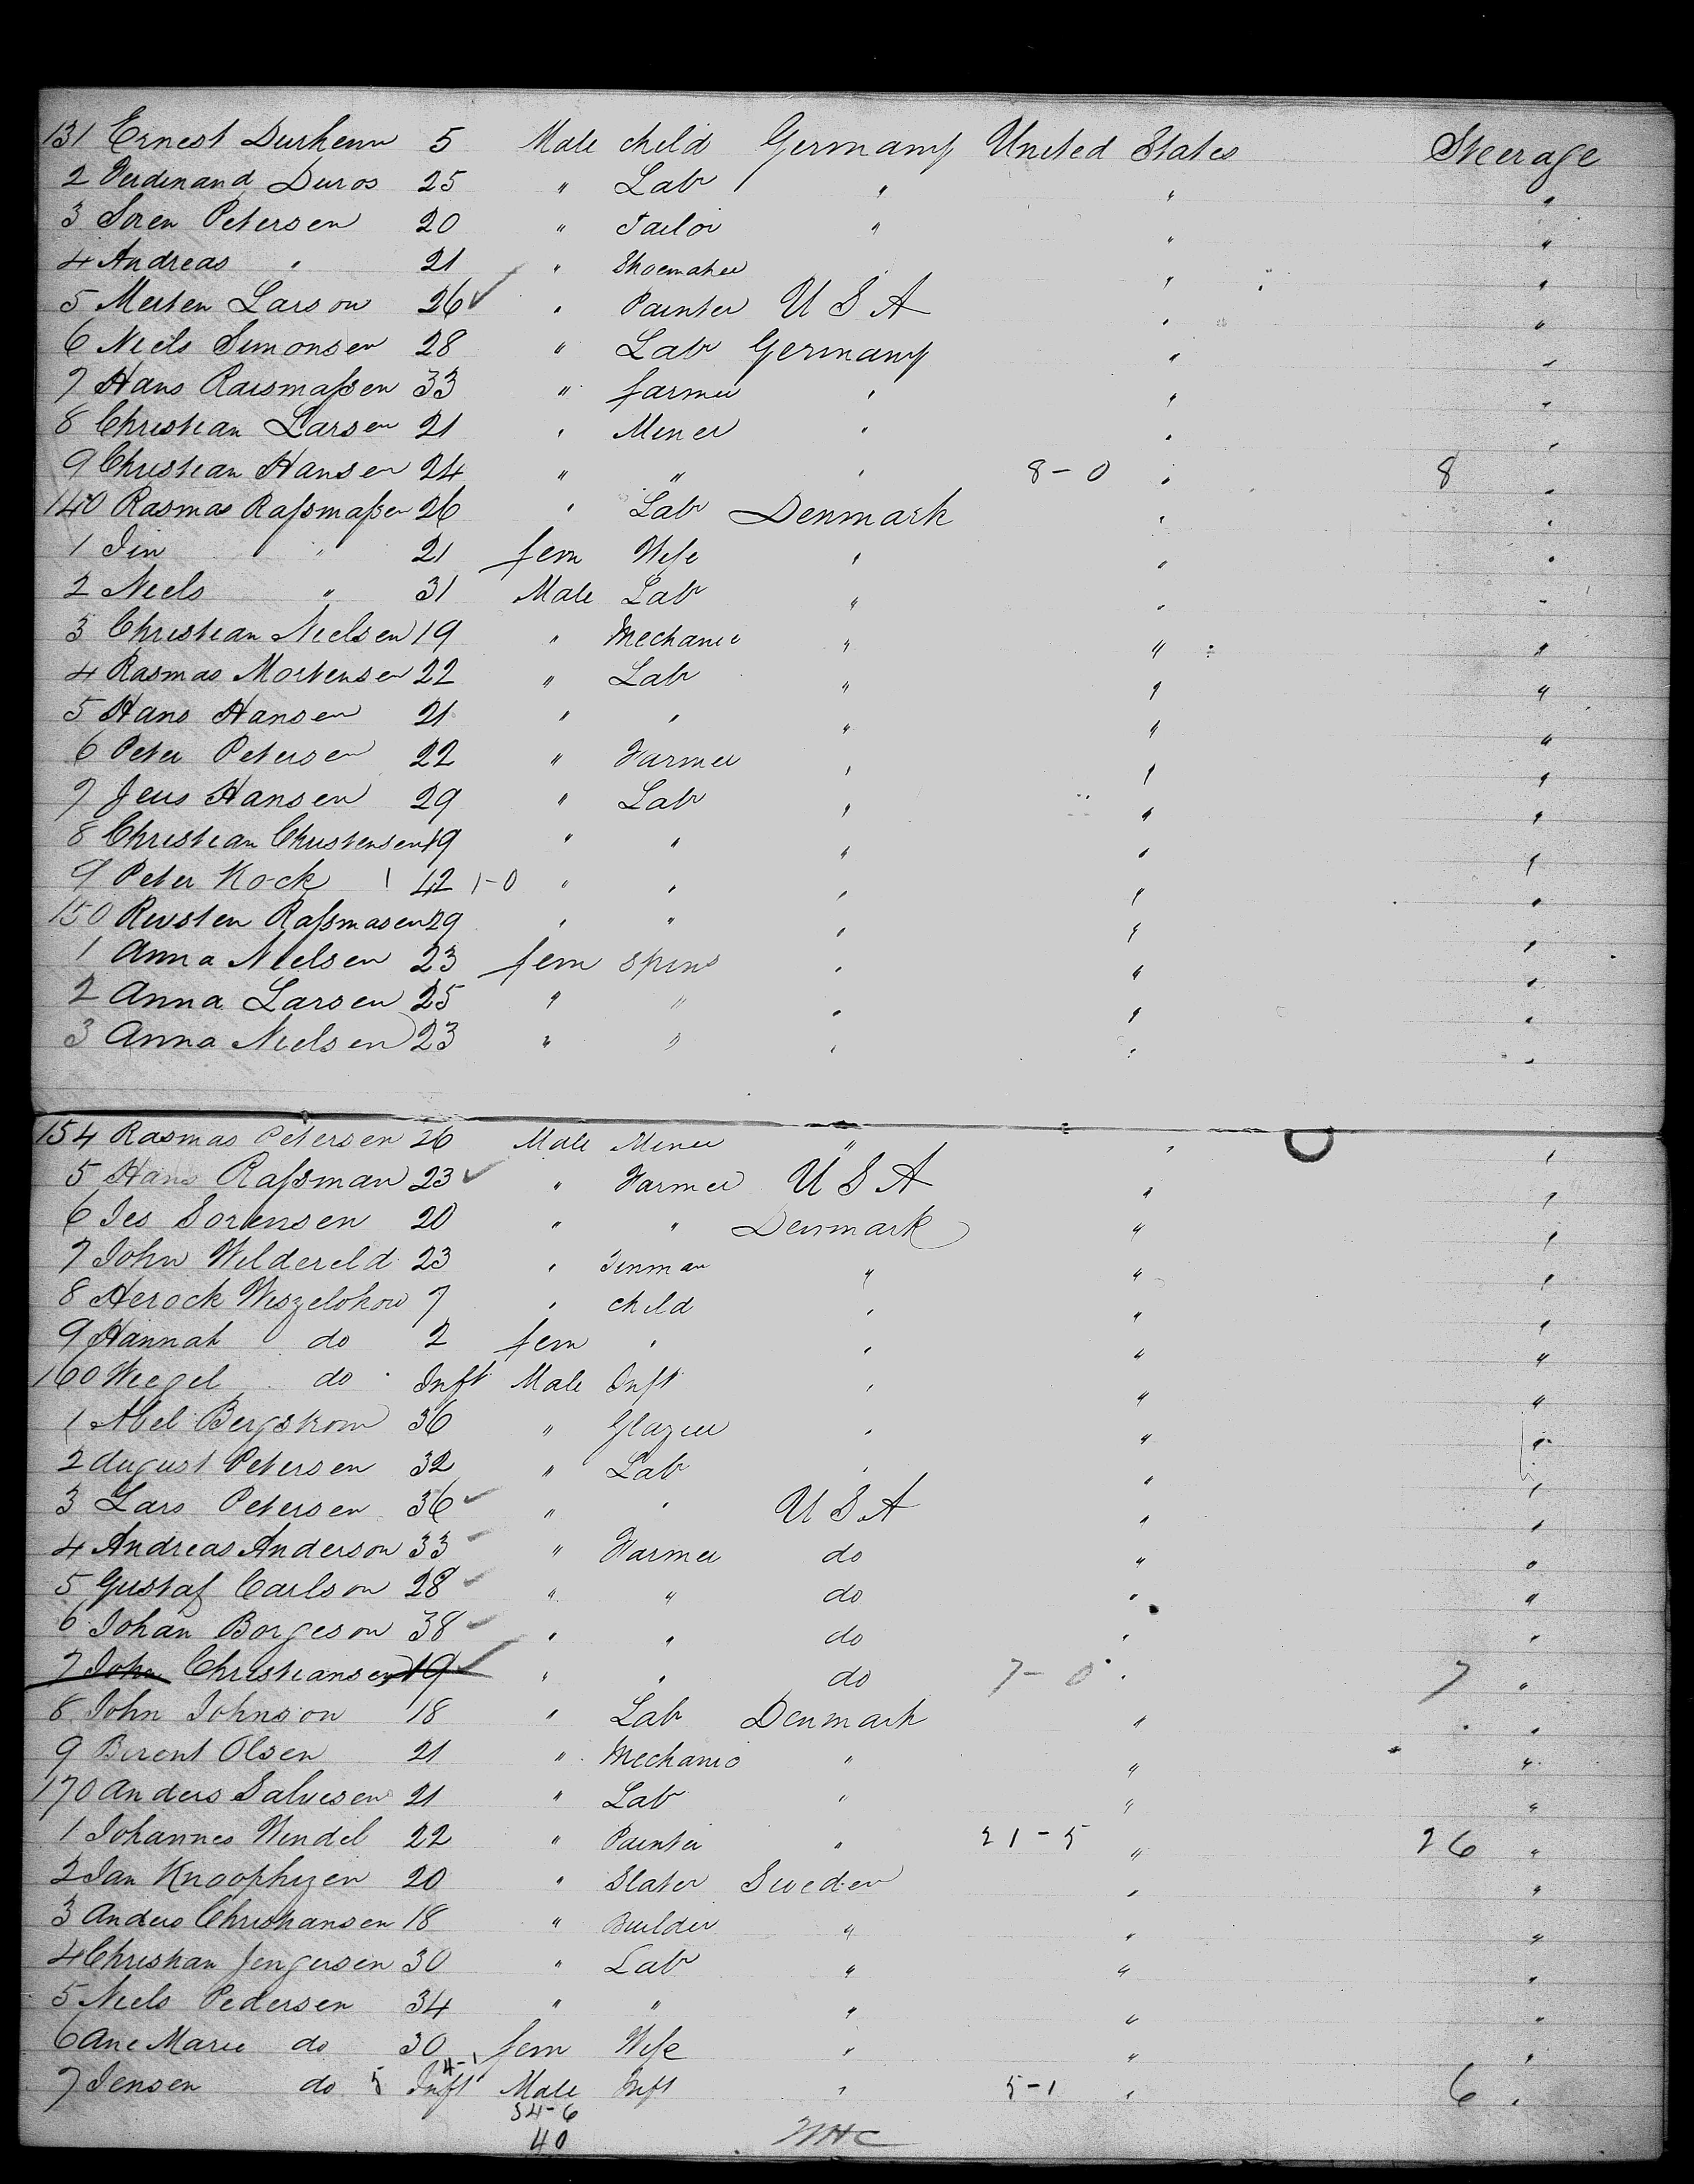 131 Ernest Durhenn 5 Male child Germany United States Steerage
2 Ferdinand Duros 25 " Lab " " "
3 Soren Petersen 20 " Tailor " " "
4 Andreas " 21 " Shoemaker " "
5 Merten Larson 26 ✓ " Painter U S A " "
6 Niels Simonsen 28 " Lab Germany " "
7 Hans Rausmassen 33 " farmer " " "
8 Christian Larsen 21 " Miner " " "
9 Christian Hansen 24 " " " 8-0 " 8 "
140 Rasmas Rassmassen 26 " Lab Denmark " "
1 Jin " 21 fem Wife " " "
2 Niels " 31 Male Lab " " "
3 Christian Nielsen 19 " Mechanic " " "
4 Rasmas Mortensen 22 " Lab " " "
5 Hans Hansen 21 " " " " "
6 Peter Petersen 22 " Farmer " " "
7 Jens Hansen 29 " Lab " " "
8 Christian Christensen 19 " " " " "
9 Peter Kock 1 42 1-0 " " " " "
150 Rassmasen 29 " " " " "
1 Anna Nielsen 23 fem spins " " "
2 Anna Larsen 25 " " " " "
3 Anna Nielsen 23 " " " " "
154 Rasmas Petersen 26 Male Miner " " "
5 Hans Rassman 23 ✓ " Farmer U S A " "
6 Jes Sorensen 20 " " Denmark " "
7 John Wildereld 23 " Tinman " " "
8 Herock Wiszelohow 7 " child " " "
9 Hannah do 2 fem " " " "
160 Wiegel do Inft Male Inft " " "
1 Abel Bergstrom 36 " Glazier " " "
2 August Petersen 32 " Lab " " "
3 Lars Petersen 36 ✓ " " U S A " "
4 Andreas Anderson 33 ✓ " Farmer do " "
5 Gustaf Carlson 28 ✓ " " do " "
6 Johan Borgeson 38 ✓ " " do " "
7 John Christiansen 19 ✓ " " do 7-0 " 7 "
8 John Johnson 18 " Lab Denmark " "
9 Berent Olsen 21 " Mechanic " " "
170 Anders Salvesen 21 " Lab " " "
1 Johannes Windel 22 " Painter " 21-5 " 26 "
2 Jan Knoophuzen 20 " Slater Sweden " "
3 Anders Christiansen 18 " Builder " " "
4 Christian Jengersen 30 " Lab " " "
5 Niels Pedersen 34 " " " " "
6 Ane Marie do 30 fem Wife " " "
7 Jensen do 5 Inft 4-1 Male Inft " 5-1 " 6 "
34-6
40 MHC